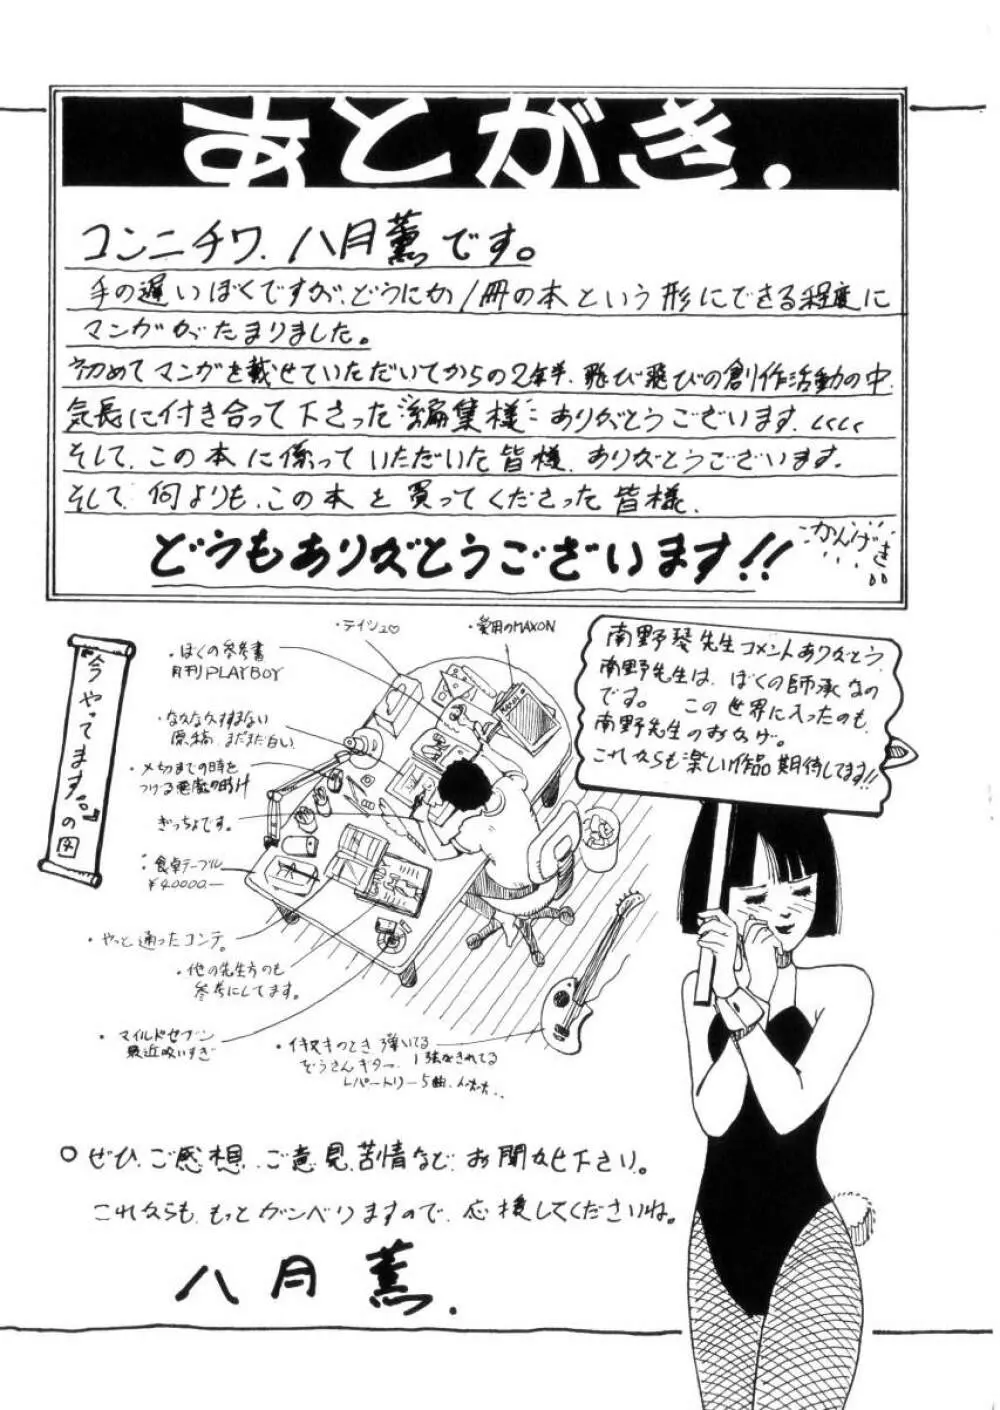 あとがき.
コンニチワ、八月薫です。
手の遅いぼくですが、どうにか1冊の本という形にできる程度に
マンガがたまりました。
初めてマンガを載せていただいてからの2年半、飛び飛びの創作活動の中、
気長に付き合って下さった編集様、ありがとうございます。
そして、この本に係っていただいた皆様、ありがとうございます。
そして、何よりも、この本を買ってくださった皆様、
どうもありがとうございます!!
かんげき
『今やってます。』の図
・ティシュ♡
・愛用のMAXON
・ぼくの参考書
月刊PLAYBOY
・なかなかすすまない
原稿、まだまだ白い
・〆切までの時を
つげる悪魔の時計
ぎっちょです。
・食卓テーブル
¥40000.—
・やっと通ったコンテ。
・他の先生方のも
参考にしてます。
・マイルドセブン
最近吸いすぎ
・イキヌキのとき弾いてる
ぞうさんギター、1弦がきれてる
レパートリー5曲、
南野琴先生コメントありがとう、
南野先生は、ぼくの師承なの
です。この世界に入ったのも、
南野先生のおかげ。
これからも楽しい作品期待してます!!
○ぜひ、ご感想、ご意見、苦情など、お聞かせ下さい。
これからも、もっとガンバりますので、応援してくださいね。
八月薫.